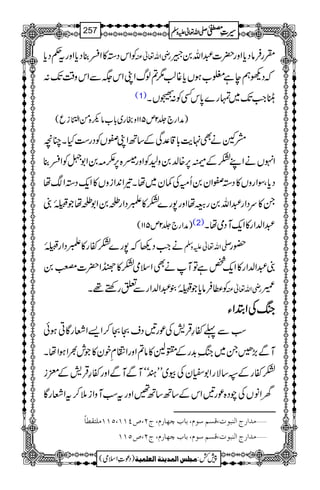 سیرتِ مصطفیٰ صلی اللہ تعالیٰ علیہ وسلم 257
مقرر فرما دیا اور حضرت عبداللہ بن جبیر رضی اللہ تعالیٰ عنہ کو اس دستہ کا افسر بنا دیا اور یہ حکم دیا
کہ دیکھو ہم چاہے مغلوب ہوں یا غالب مگر تم لوگ اپنی اس جگہ سے اس وقت تک نہ
ہٹنا جب تک میں تمہارے پاس کسی کو نہ بھیجوں۔(1)
(مدارج جلد ۲ ص ۱۱۵ و بخاری باب ما یکرہ من التنازع)
مشرکین نے بھی نہایت باقاعدگی کے ساتھ اپنی صفوں کو درست کیا۔ چنانچہ
انہوں نے اپنے لشکر کے میمنہ پر خالد بن ولید کو اور میسرہ پر عکرمہ بن ابوجہل کو افسر بنا
دیا، سواروں کا دستہ صفوان بن امیہ کی کمان میں تھا۔ تیر اندازوں کا ایک دستہ الگ تھا
جن کا سردار عبداللہ بن ربیعہ تھا اور پورے لشکر کا علمبردار طلحہ بن ابوطلحہ تھا جو قبیلۂ بنی
عبدالدار کا ایک آدمی تھا۔(2) (مدارج جلد ۲ ص ۱۱۵)
حضور صلی اللہ تعالیٰ علیہ وسلم نے جب دیکھا کہ پورے لشکر کفار کا علمبردار قبیلۂ
بنی عبدالدار کا ایک شخص ہے تو آپ نے بھی اسلامی لشکر کا جھنڈا حضرت مصعب بن
عمیر رضی اللہ تعالیٰ عنہ کو عطا فرمایا جو قبیلۂ بنو عبدالدار سے تعلق رکھتے تھے۔
جنگ کی ابتداء
سب سے پہلے کفار قریش کی عورتیں دف بجا بجا کر ایسے اشعار گاتی ہوئی
آگے بڑھیں جن میں جنگ بدر کے مقتولین کا ماتم اور انتقامِ خون کا جوش بھرا ہوا تھا۔
لشکر کفار کے سپہ سالار ابوسفیان کی بیوی ”ہند“ آگے آگے اور کفار قریش کے معزز
گھرانوں کی چودہ عورتیں اس کے ساتھ ساتھ تھیں اور یہ سب آواز ملا کر یہ اشعار گا
......مدارج النبوت،قسم سوم، باب چہارم، ج۲،ص۱۱۴،۱۱۵ملتقطاً
......مدارج النبوت،قسم سوم، باب چہارم، ج۲،ص۱۱۵
پیش کش: مجلس المدینۃ العلمیۃ (دعوتِ اسلامی)